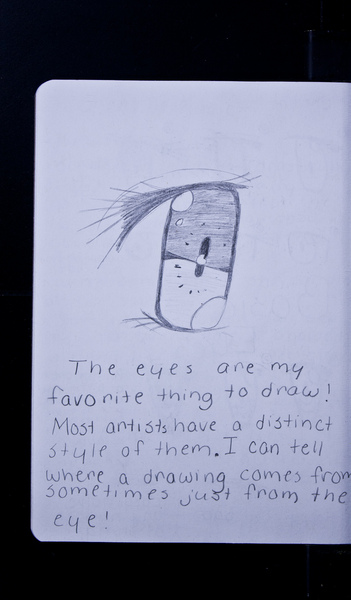 The eyes are my
favorite thing to draw!
Most artists have a distinct
style of them. I can tell
where a drawing comes from
sometimes just from the
eye!